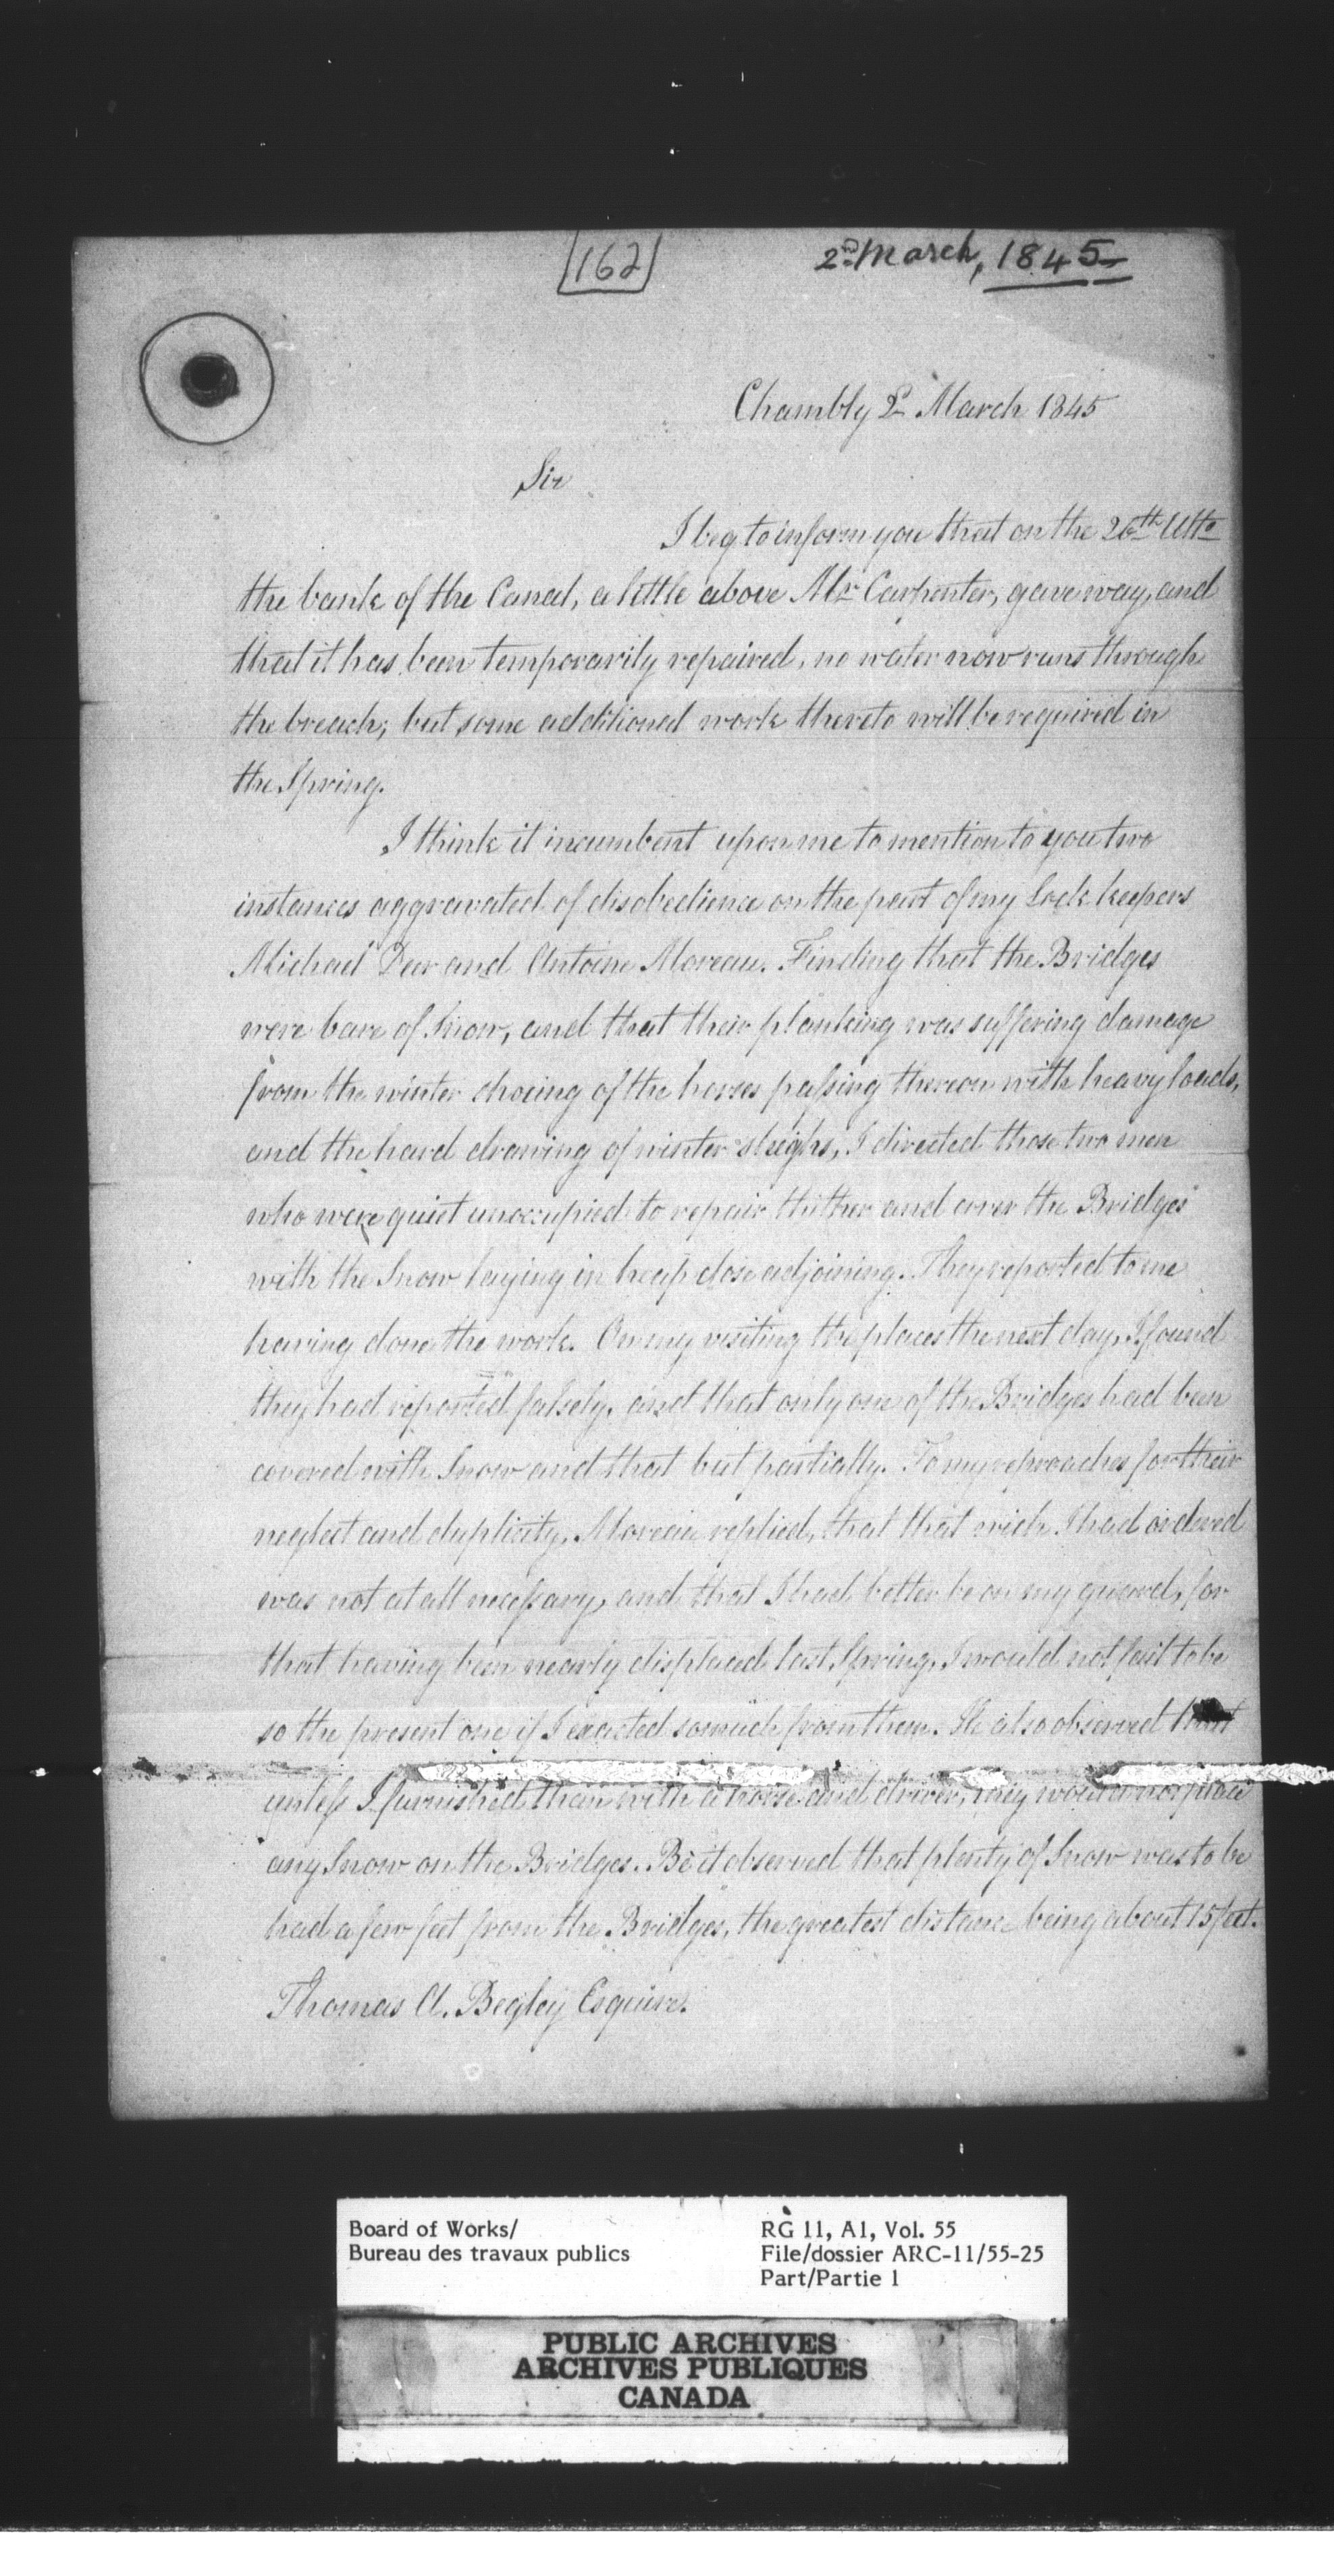 162
2nd March, 1845
Chambly 2d March 1845
Sir
I beg to inform you that on the 26th Ulto
the bank of the Canal, a little above Mr Carpenter, gave way, and
that it has been temporarily repaired, no water now runs through
the breach; but some additional work thereto will be required in
the Spring.
I think it incumbent upon me to mention to you two
instances aggravated of disobedience on the part of my Lock keepers
Michael Deer and Antoine Moreau. Finding that the Bridges
were bare of Snow, and that their planking was suffering damage
from the winter shoeing of the horses passing thereon with heavy loads,
and the hard drawing of winter sleighs, I directed those two men
who were quiet unoccupied to repair thither and cover the Bridges
with the Snow laying in heap close adjoining. They reported to me
having done the work. On my visiting the places the next day, I found
they had reported falsely, and that only one of the Bridges had been
covered with Snow and that but partially. To my reproaches for their
neglect and duplicity, Moreau replied, that that wich I had ordered
was not at all necessary, and that I had better be on my guard, for
that having been nearly displaced last Spring, I would not fail to be
so the present one if I exacted so much from them. He also observed that
unless I furnished them with a horse and driver, they would not place
any Snow on the Bridges. Be it observed that plenty of Snow was to be
had a few feet from the Bridges, the greatest distance being about 15 feet.
Thomas A. Begley Esquire.
Board of Works/
Bureau des travaux publics
RG 11, A1, Vol. 55
File/dossier ARC-11/55-25
Part/Partie 1
PUBLIC ARCHIVES
ARCHIVES PUBLIQUES
CANADA